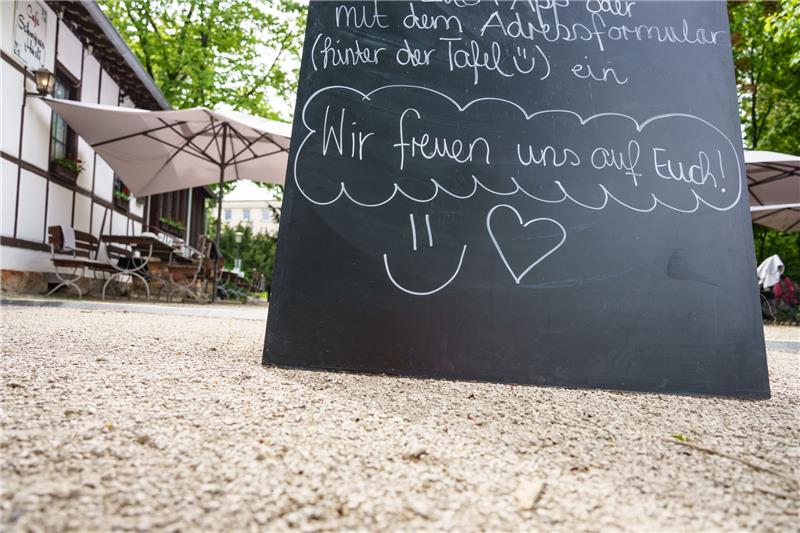 App oder
mit dem Adressformular
(hinter der Tafel ü) ein
Wir freuen uns auf Euch!
Cafe